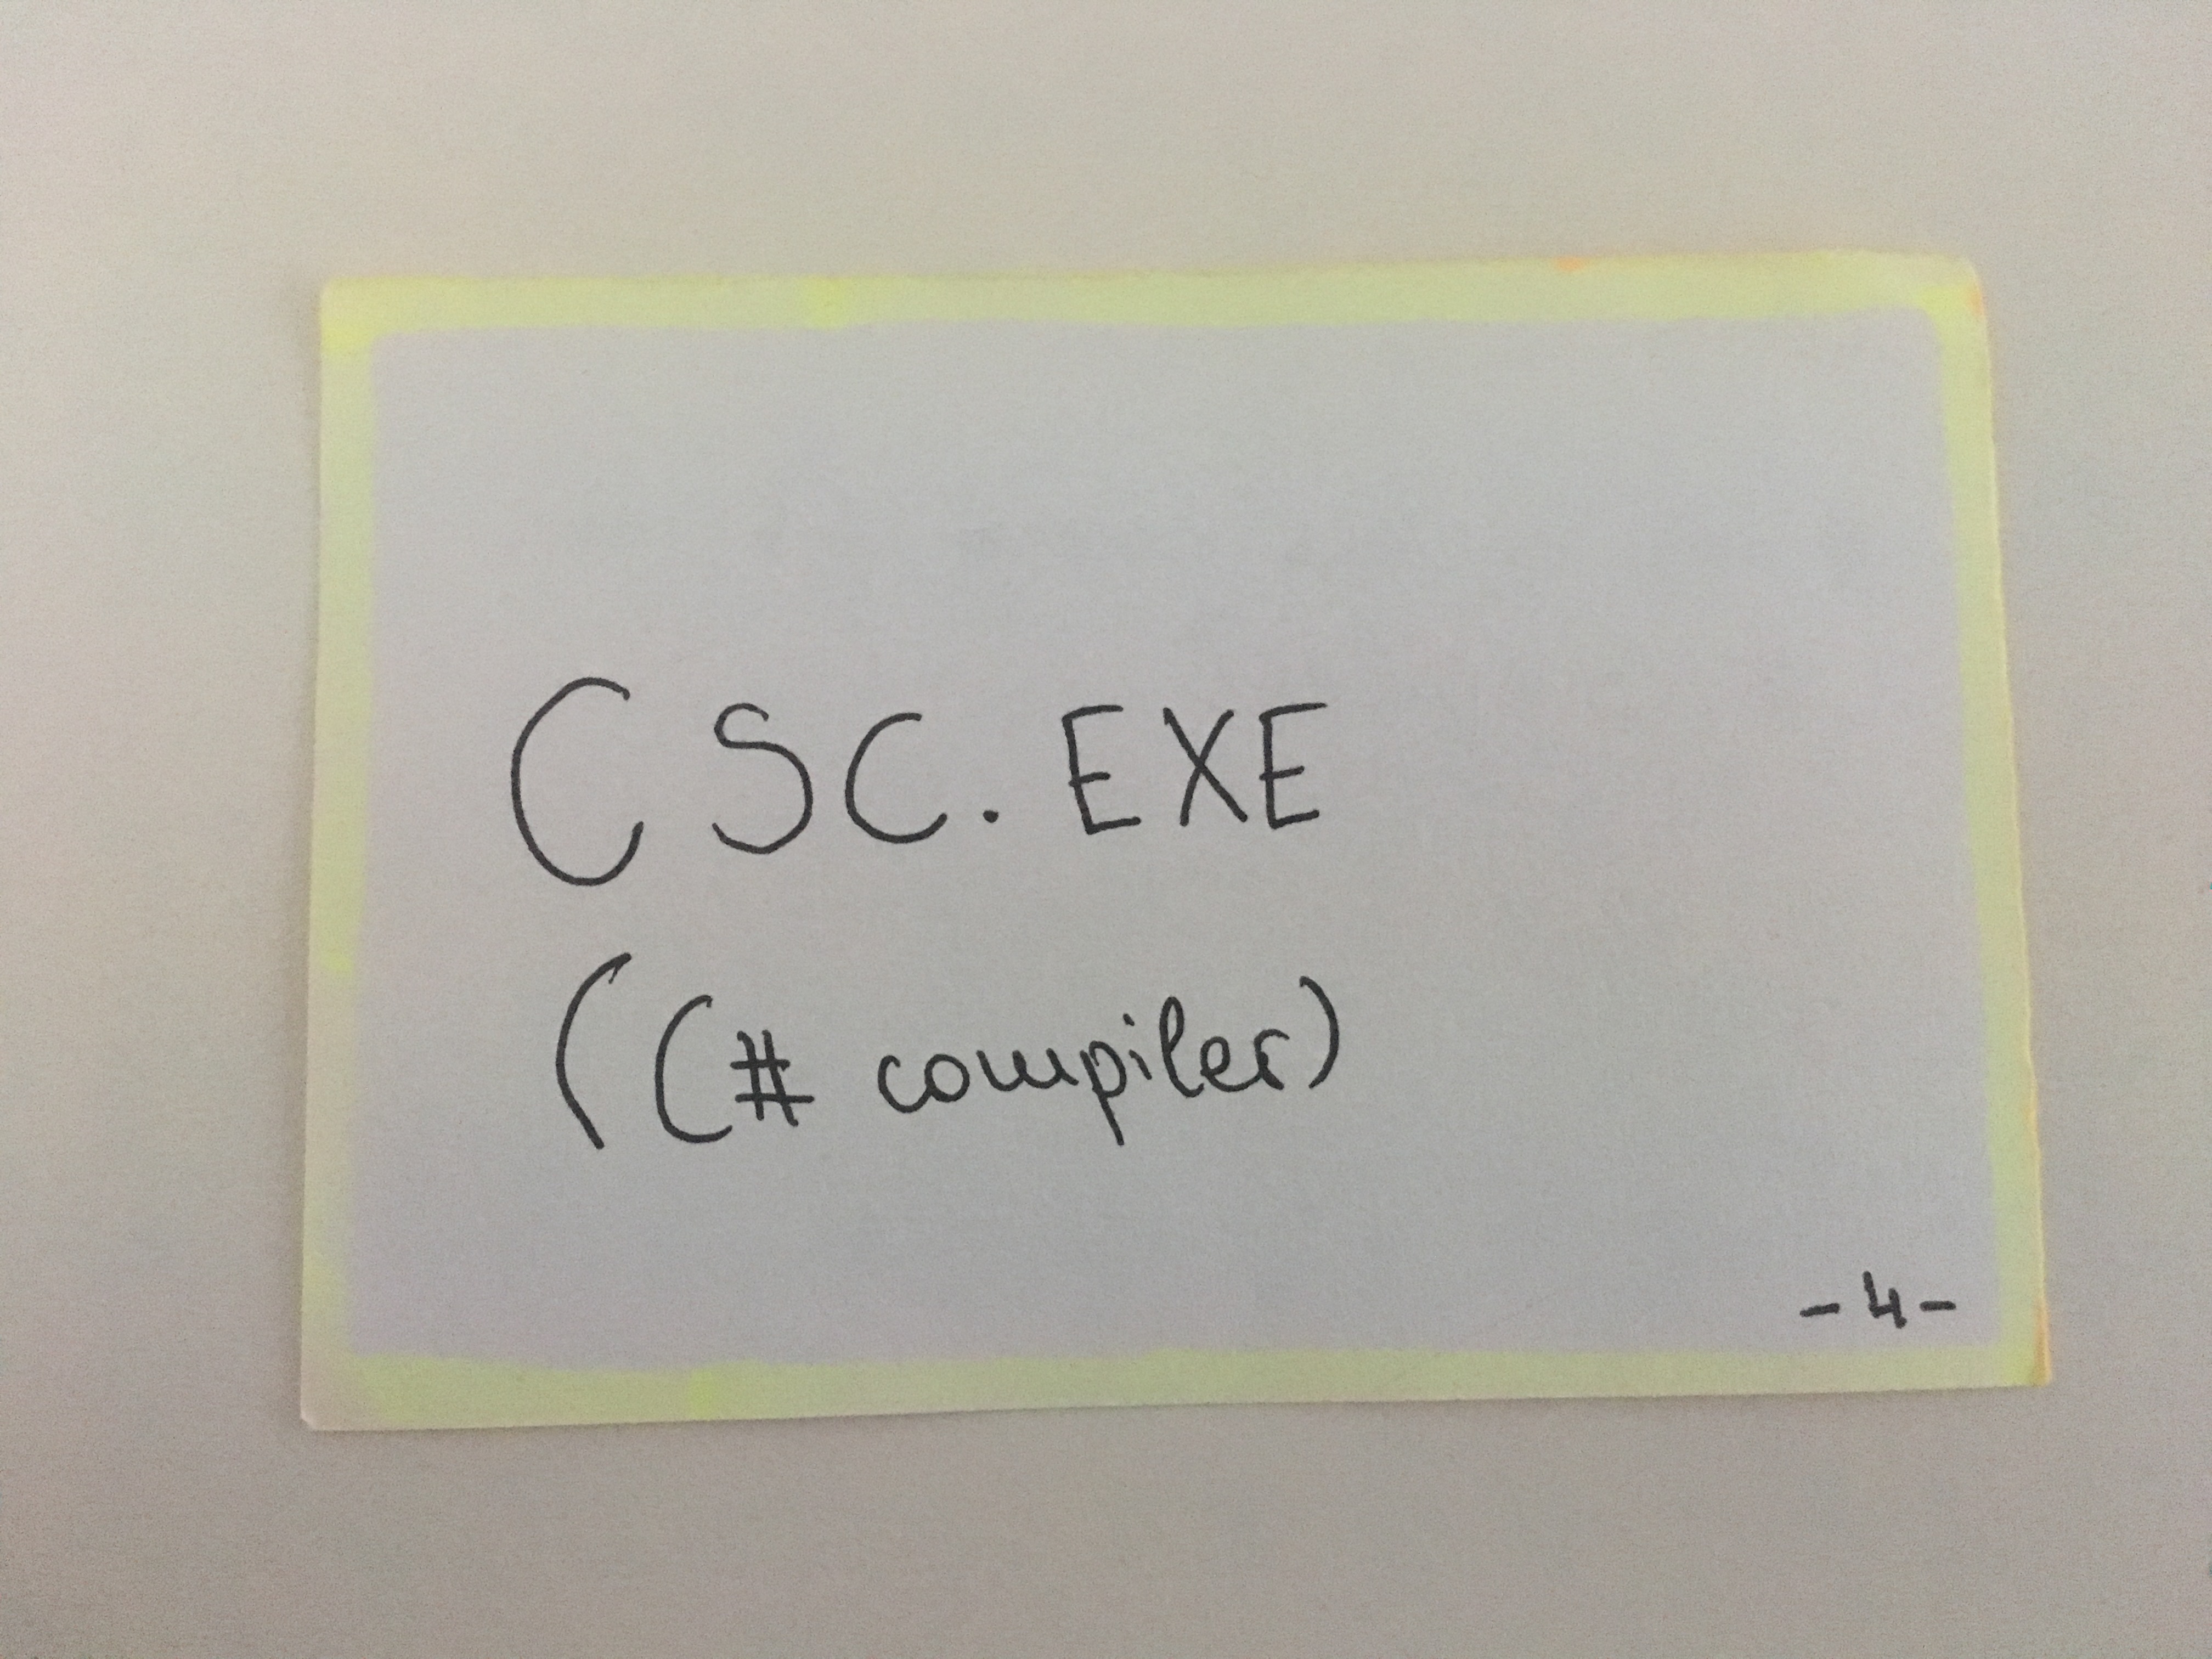 CSC.EXE
(C# compiler)
-4-